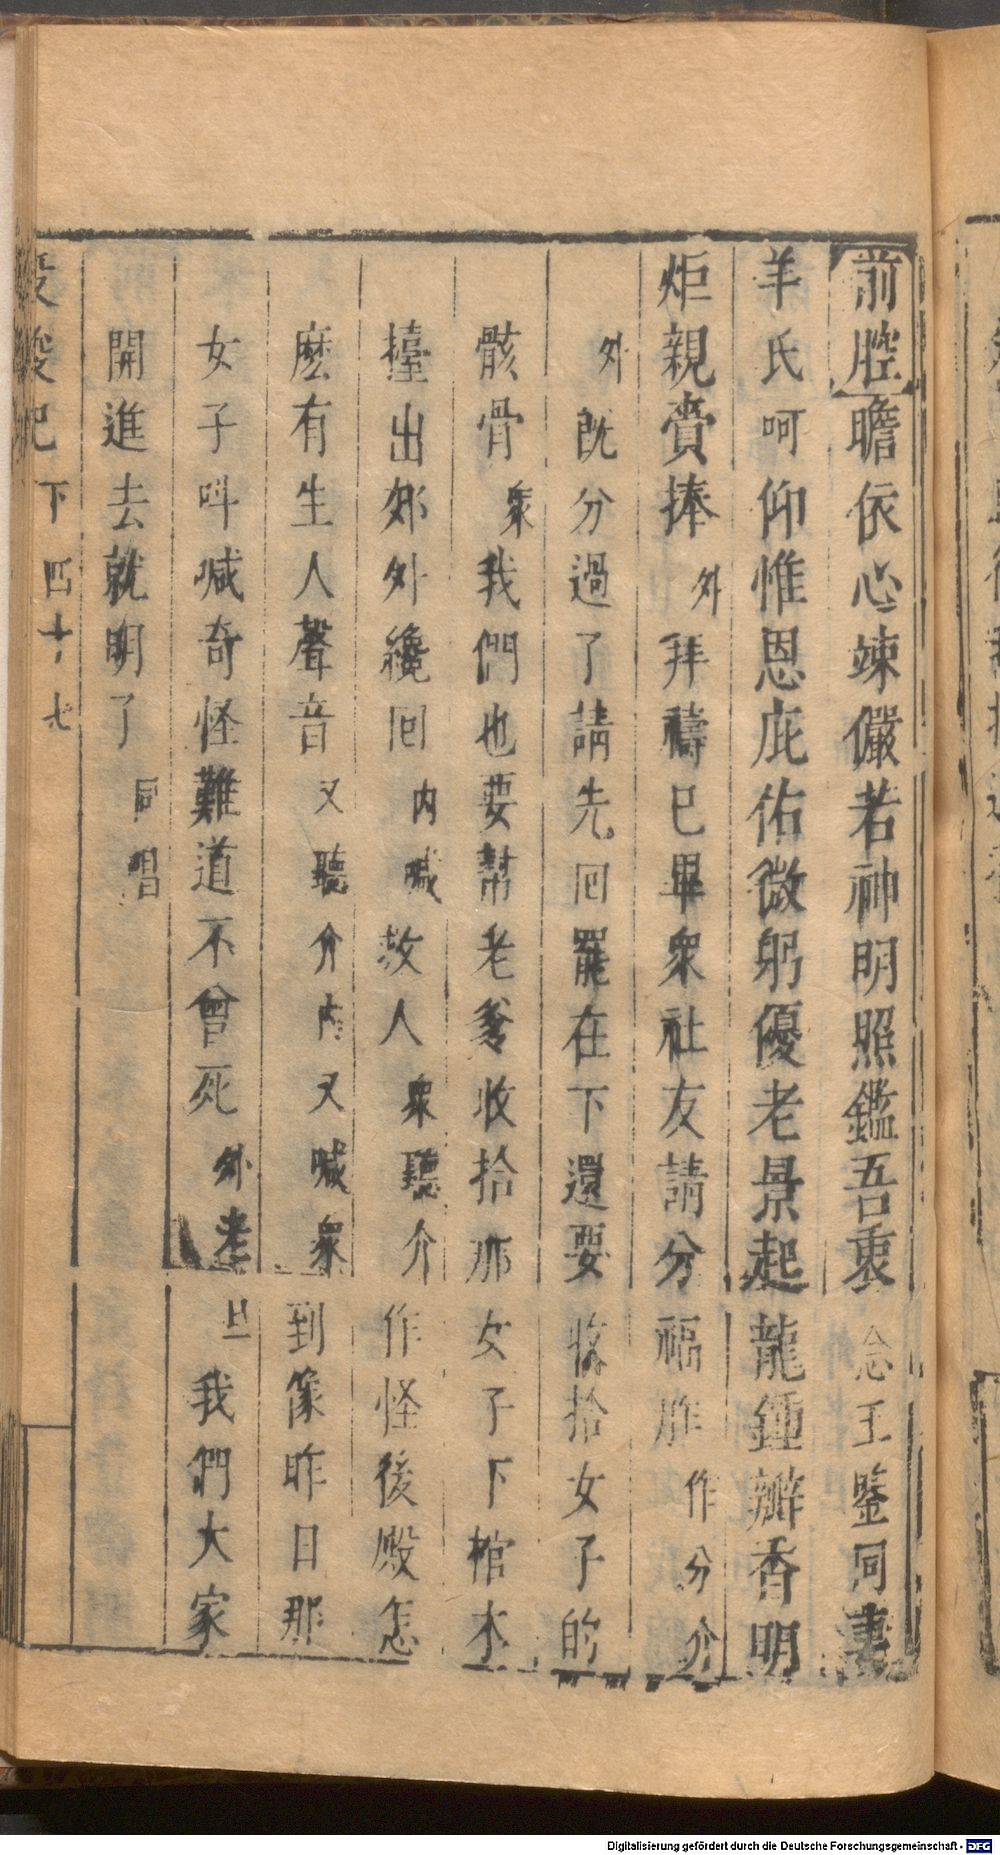 前腔瞻依心竦儼若神明照鑑吾衷念王鑒同妻
羊氏呵仰惟恩庇佑微躬優老景起龍鍾瓣香明
炬親賫捧外拜禱已畢衆社友請分福胙作分介
外旣分過了請先回罷在下還要收拾女子的
骸骨衆我們也要幇老爹收拾那女子下棺木
擡出郊外纔回内喊故人衆聽介作怪後殿怎
麽有生人聲音又聽介内又喊衆到像昨日那
女子呌喊奇怪難道不曾死外老旦我們大家
開進去就明了同唱
記 下 四十七
Digitalisierung gefördert durch die Deutsche Forschungsgemeinschaft - DFG